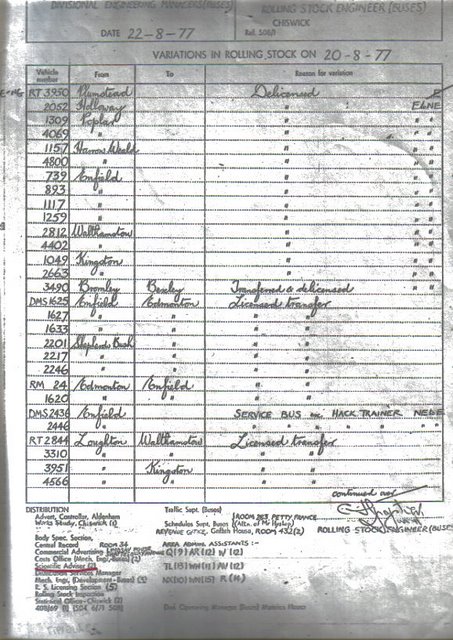 DIVISIONAL ENGINEERING MANAGERS (BUSES)
ROLLING STOCK ENGINEER (BUSES)
CHISWICK
DATE 22-8-77
VARIATIONS IN ROLLING STOCK ON 20-8-77
Vehicle number From To Reason for variation
RT 3950 Plumstead Delicensed
2052 Holloway " E&NE
1309 Poplar " " "
4069 " " " "
1157 Harrow Weald " " "
4800 " " " "
739 Enfield " " "
893 " " " "
1117 " " " "
1259 " " " "
2812 Walthamstow " " "
4402 " " " "
1049 Kingston " " "
2663 " " " "
3490 Bromley Bexley Transferred & delicensed " "
DMS 1625 Enfield Edmonton Licensed transfer
1627 " " " "
1633 " " " "
2201 Shepherds Bush " " "
2217 " " " "
2246 " " " "
RM 24 Edmonton Enfield " "
1620 " " " "
DMS 2436 Enfield SERVICE BUS inc HACK TRAINER NE&E
2446 " " " " " "
RT 2844 Loughton Walthamstow Licensed transfer
3310 " " " "
3951 " Kingston " "
4566 " " " "
continued over
ROLLING STOCK ENGINEER (BUSES)
DISTRIBUTION
Advert, Controller, Aldenham
Works Study, Chiswick (1)
Body Spec, Section,
Central Record ROOM 34
Commercial Advertising
Costs Office (Mech. Engr, Buses) (2)
Scientific Adviser (2)
Mech. Engr, (Development-Buses)
R. S. Licensing Section (5)
Rolling Stock Inspection
Statistical Office-Chiswick (2)
Traffic Supt. (Buses) ROOM 263, PETTY FRANCE
Schedules Supt. Buses
REVENUE OFFICE, Griffith House, ROOM 432(2)
AREA ADMIN. ASSISTANTS :-